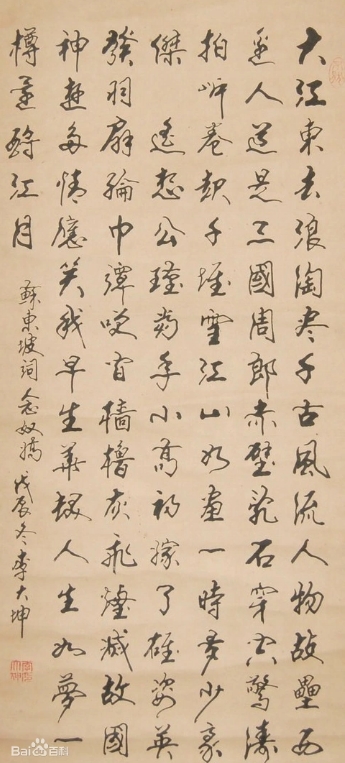 大江東去浪淘尽千古風流人物故壘西
邊人道是三國周郎赤壁亂石穿空驚濤
拍岸卷起千堆雪江山如畫一時多少豪
傑 遙想公瑾當年小喬初嫁了雄姿英
發羽扇綸巾談笑間檣櫓灰飛煙滅故國
神遊多情應笑我早生華髮人生如夢一
樽還酹江月
蘇東坡詞念奴嬌 戊辰冬李大坤
Bai百科